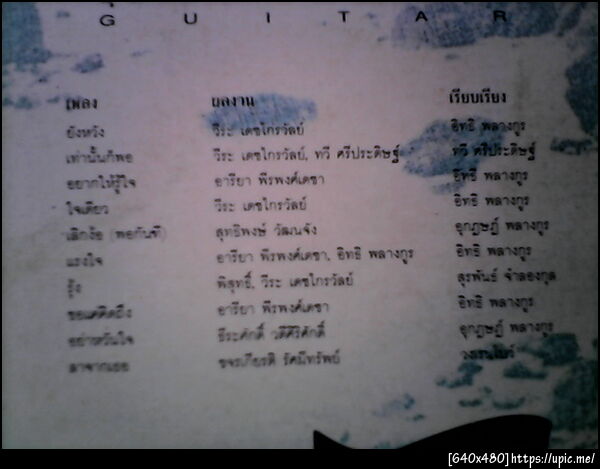 GUITAR
เพลง ผลงาน เรียบเรียง
ยังหวัง วีระ เดชไกรวัลย์ อิทธิ พลางกูร
เท่านั้นก็พอ วีระ เดชไกรวัลย์, ทวี ศรีประดิษฐ์ ทวี ศรีประดิษฐ์
อยากให้รู้ใจ อารียา พีรพงศ์เดชา อิทธิ พลางกูร
ใจเดียว วีระ เดชไกรวัลย์ อิทธิ พลางกูร
เลิกง้อ (พอกันที) สุทธิพงษ์ วัฒนจัง อุกฤษฎ์ พลางกูร
แรงใจ อารียา พีรพงศ์เดชา, อิทธิ พลางกูร อิทธิ พลางกูร
รุ้ง พิสุทธิ์, วีระ เดชไกรวัลย์ สุรพันธ์ จำลองกุล
ขอแค่คิดถึง อารียา พีรพงศ์เดชา อิทธิ พลางกูร
อย่าหวั่นใจ ธีระศักดิ์ วดีศิริศักดิ์ อุกฤษฎ์ พลางกูร
ลาจากเธอ ขจรเกียรติ รัศมีทรัพย์
[640x480]https://upic.me/